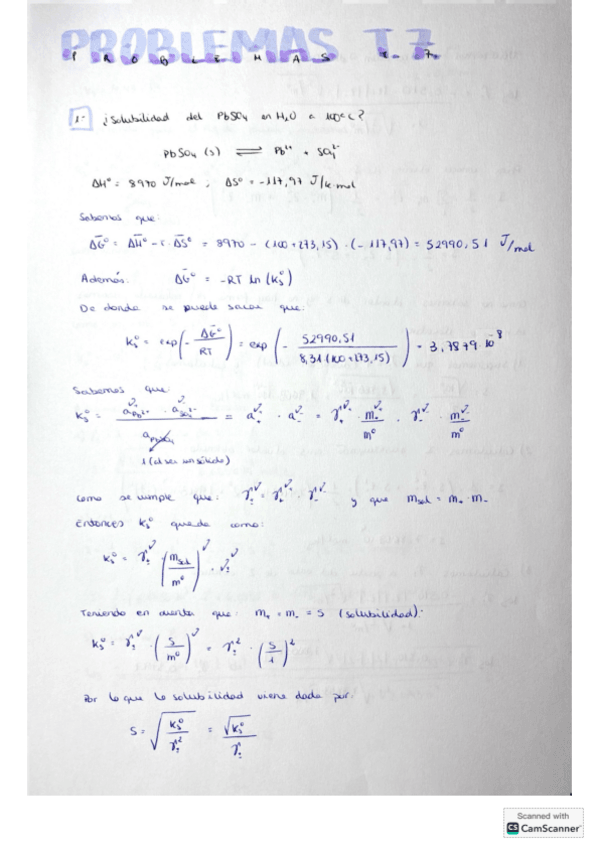 PROBLEMAS T.7
PROBLEMAS T. 7.
1- ¿Solubilidad del PbSO4 en H2O a 100ºC?
PbSO4 (s) ⇌ Pb²⁺ + SO4²⁻
ΔHº = 8970 J/mol ; ΔSº = -117,97 J/k·mol
Sabemos que:
ΔGº = ΔHº - T·ΔSº = 8970 - (100+273,15)·(-117,97) = 52990,51 J/mol
Además: ΔGº = -RT ln (Ksº)
De donde se puede sacar que:
Ksº = exp(- ΔGº/RT) = exp(- 52990,51/8,31(100+273,15)) = 3,7879·10⁻⁸
Sabemos que:
Ksº =
1 (al ser un sólido)
Como se cumple que: y que
Entonces Ksº queda como:
Ksº =
Teniendo en cuenta que: m+ = m- = S (solubilidad):
Ksº =
Por lo que la solubilidad viene dada por:
S =
Scanned with
CS CamScanner